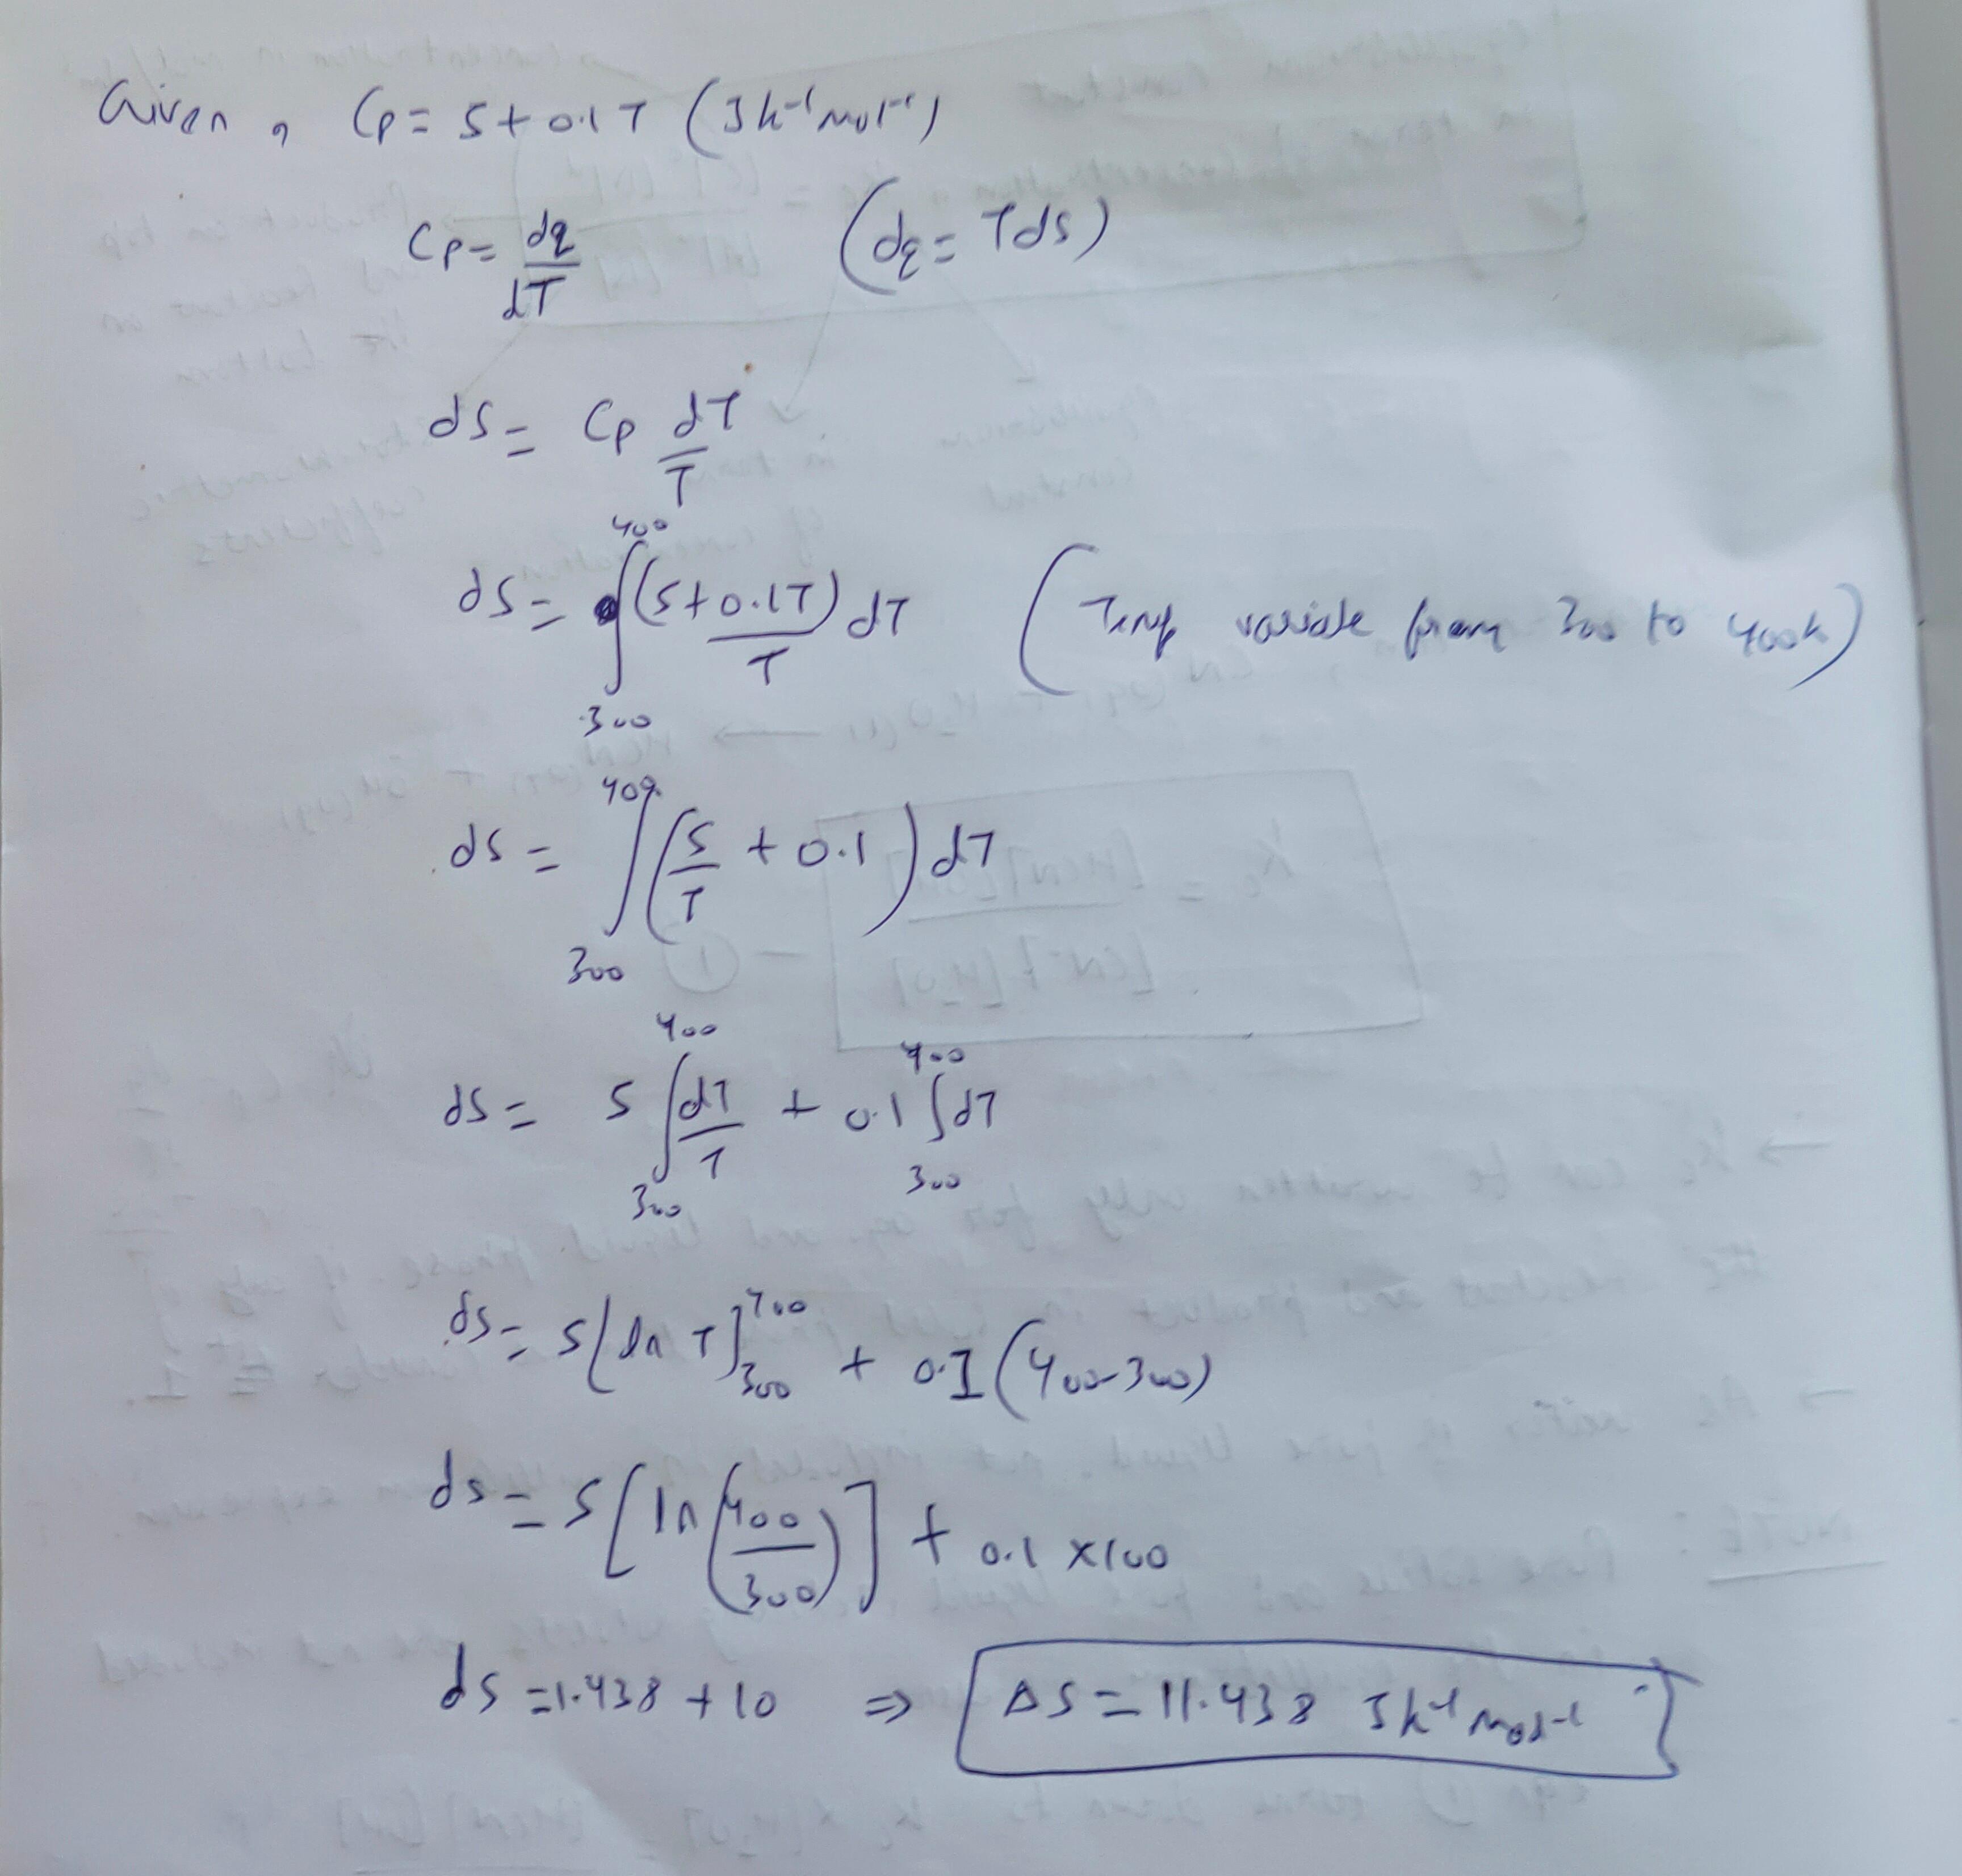 Given, Cp = 5+0.1T (JK⁻¹mol⁻¹)
Cp = dq/dT (dq = Tds)
ds = Cp dT/T
ds = ∫₃₀₀⁴⁰⁰ (5+0.1T)/T dT (Temp variate from 300 to 400k)
ds = ∫₃₀₀⁴⁰⁰ (5/T + 0.1) dT
ds = 5 ∫₃₀₀⁴⁰⁰ dT/T + 0.1 ∫₃₀₀⁴⁰⁰ dT
ds = 5[ln T]₃₀₀⁴⁰⁰ + 0.1(400-300)
ds = 5[ln(400/300)] + 0.1 x100
ds = 1.438 + 10 ⇒ ΔS = 11.438 JK⁻¹mol⁻¹